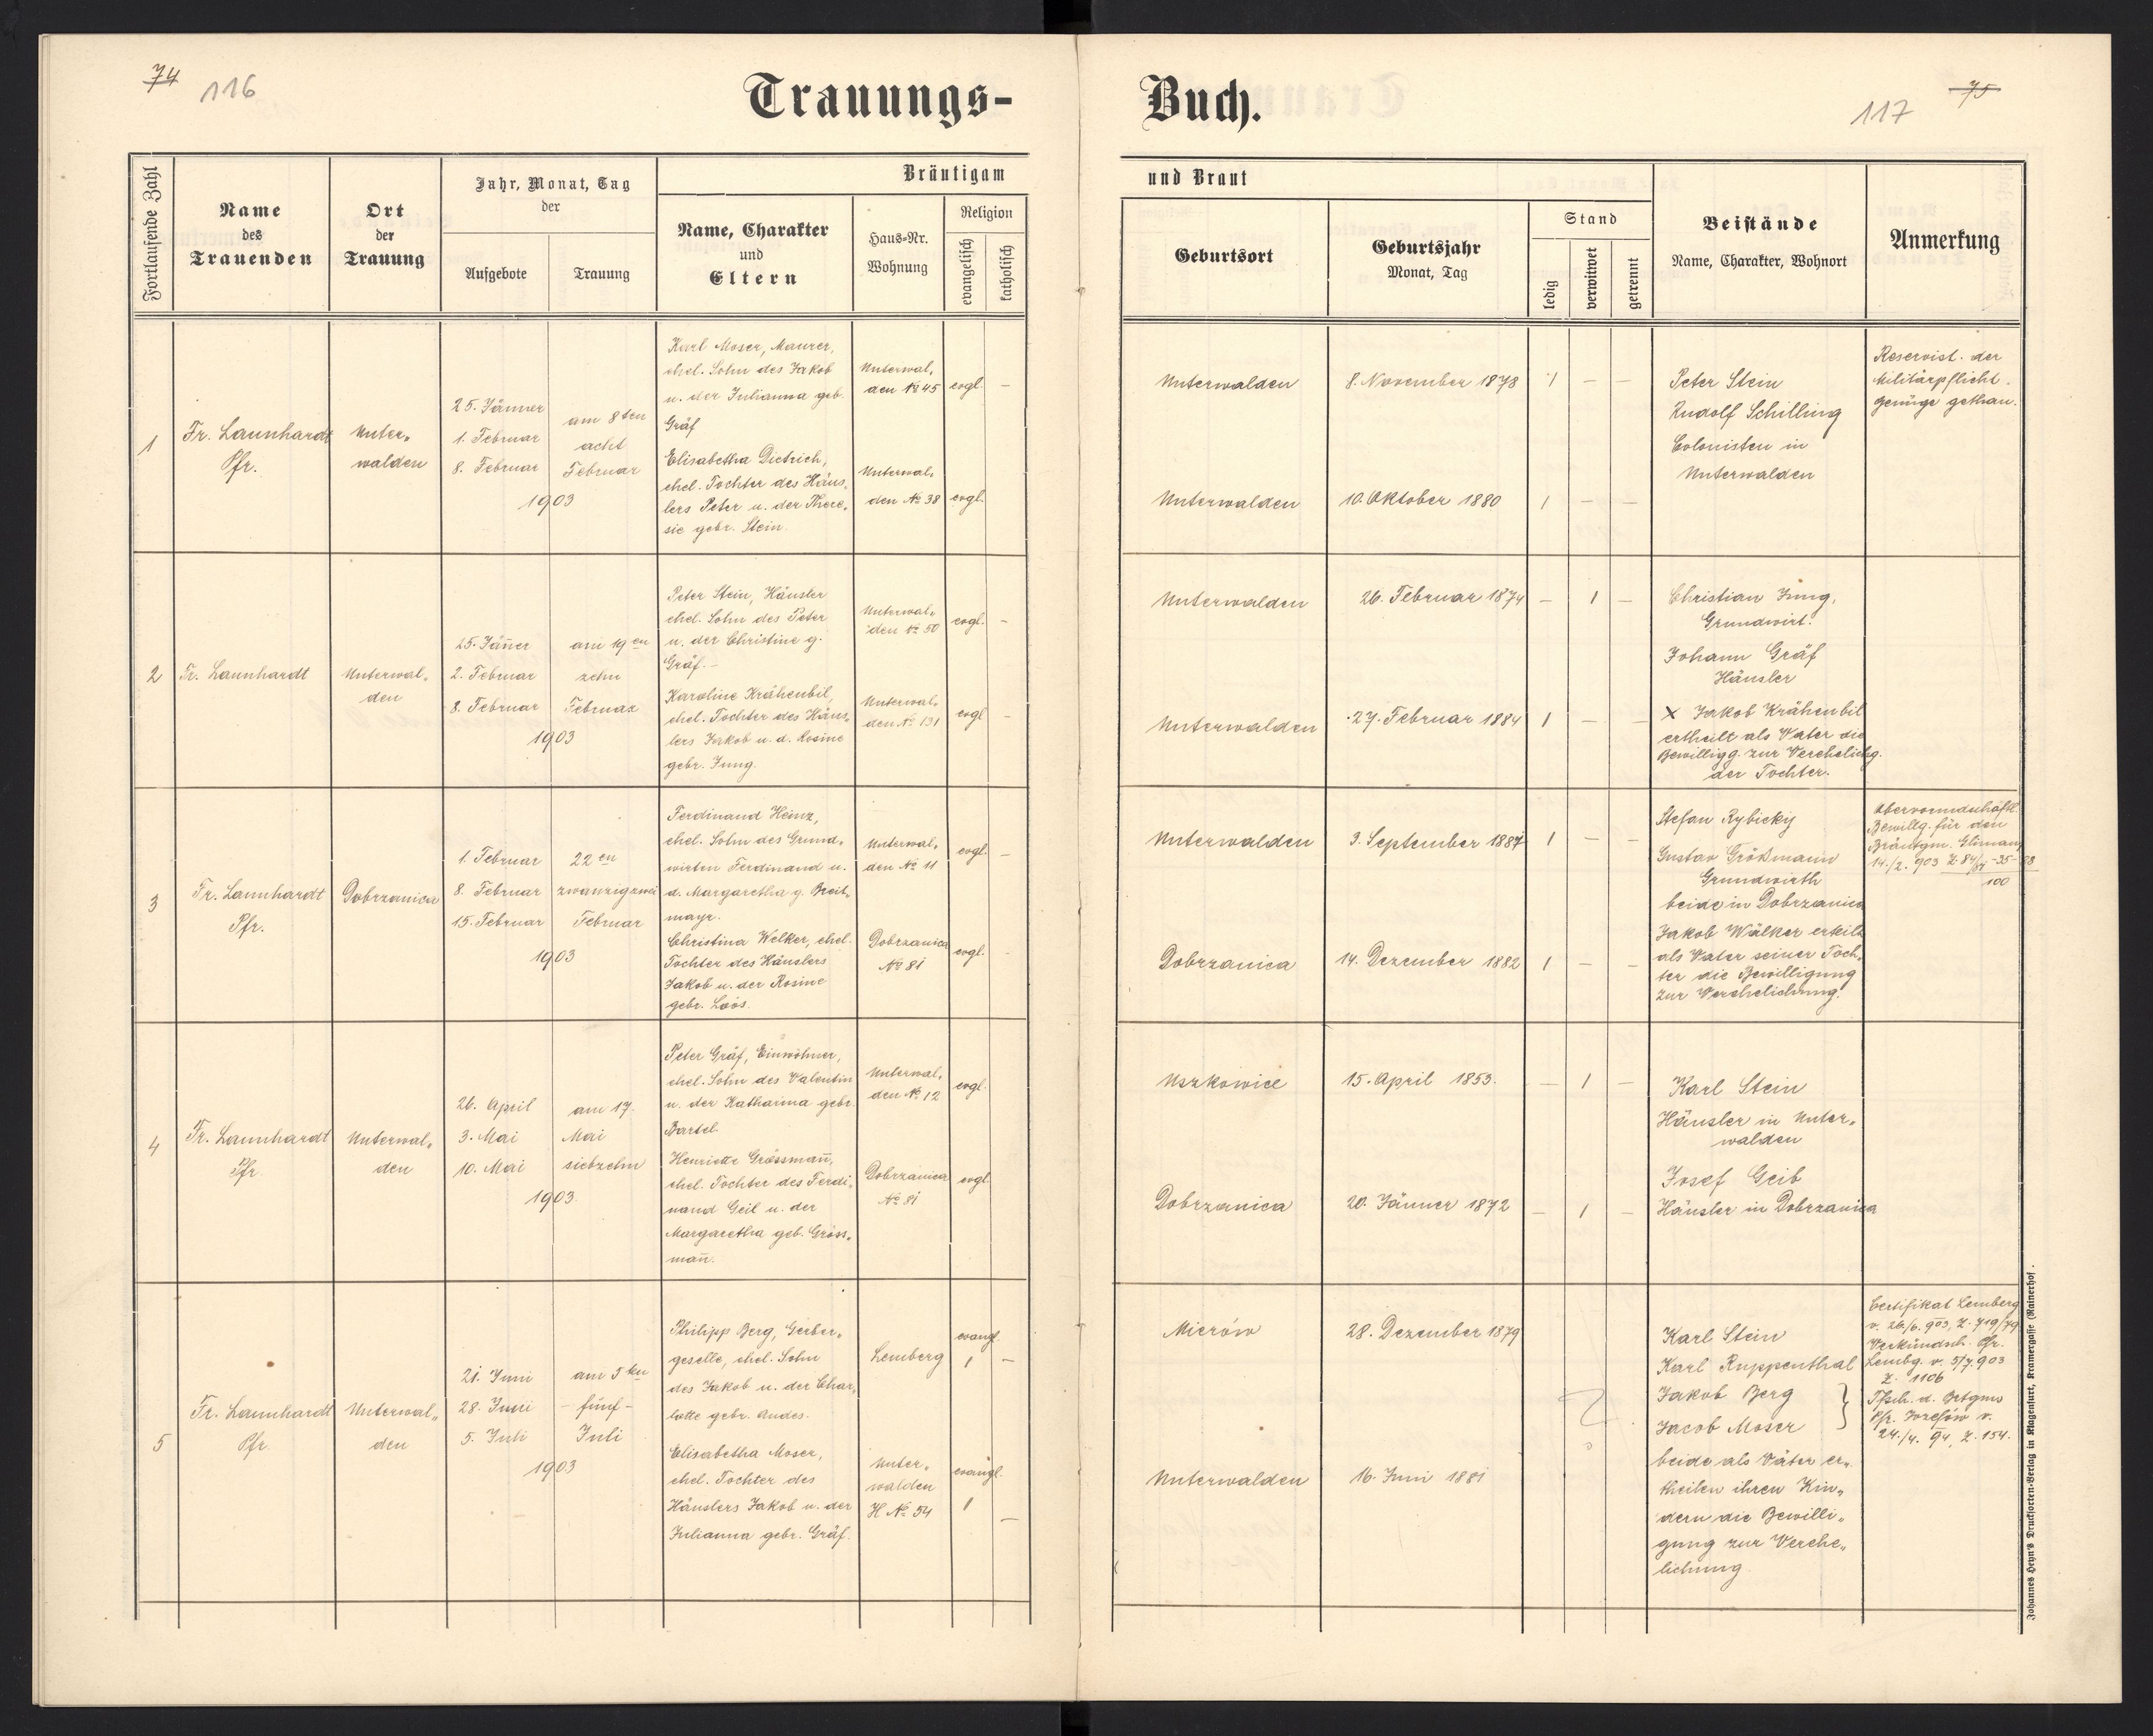 74
116
Trauungs-
Buch.
75
117
Fortlaufende Zahl
Name
des
Trauenden
Ort
der
Trauung
Jahr, Monat, Tag
der
Aufgebote
Trauung
Bräutigam
Name, Charakter
und
Eltern
Haus-Nr.
Wohnung
Religion
evangelisch
katholisch
und Braut
Geburtsort
Geburtsjahr
Monat, Tag
Stand
ledig
verwitwet
getrennt
Beistände
Name, Charakter, Wohnort
Anmerkung
1
Fr. Launhardt
Pfr.
Unter„
walden
25. Jänner
1. Februar
8. Februar
am 8ten
acht
Februar
1903
Karl Moser, Maurer,
ehel. Sohn des Jakob
u. der Julianna geb.
Gräf
Elisabetha Dietrich,
ehel. Tochter des Häus„
lers Peter u. der There„
sie gebr. Stein.
Unterwal„
den № 45
evgl. –
Unterwal„
den № 38
evgl.
Unterwalden
8. November 1878
1 – –
Unterwalden
10. Oktober 1880
1 – –
Peter Stein
Rudolf Schilling
Colonisten in
Unterwalden
Reservist. der
Militärpflicht.
genüge gethan.
2
Fr. Launhardt
Unterwal„
den
25. Jäner
2. Februar
8. Februar
am 19en
zehn
Februar
1903
Peter Stein, Häusler
ehel. Sohn des Peter
u. der Christine g.
Gräf. –
Karoline Krähenbil,
ehel. Tochter des Häus„
lers Jakob u. d. Rosine
gebr. Jung.
Unterwal„
den № 50
evgl. –
Unterwal„
den № 131
evgl –
Unterwalden
26. Februar 1874
– 1 –
Unterwalden
27. Februar 1884
1 – –
Christian Jung,
Grundwirt.
Johann Gräf
Häusler
X Jakob Krähenbil
ertheilt als Vater die
Bewilligg. zur Verehelichg.
der Tochter.
3
Fr. Launhardt
Pfr.
Dobrzanica
1. Februar
8. Februar
15. Februar
22en
zwanzigzwei
Februar
1903
Ferdinand Heinz,
ehel. Sohn des Grund„
wirten Ferdinand u.
d. Margaretha g. Breit„
mayr.
Christina Welker, ehel.
Tochter des Häuslers
Jakob u. der Rosine
gebr. Loos.
Unterwal„
den № 11
evgl. –
Dobrzanica
№ 81
evgl.
Unterwalden
3. September 1887
1 – –
Dobrzanica
14. Dezember 1882
1 – –
Stefan Rybicky
Gustav Größmann
Grundwirth
beide in Dobrzanica
Jakob Wälker erteilt
als Vater seiner Toch„
ter die Bewilligung
zur Verehelichung.
Bewillg. für den
Bräutgm.
14./2. 903
100
4
Fr. Launhardt
Pfr.
Unterwal„
den
26. April
3. Mai
10. Mai
am 17.
Mai
siebzehn
1903
Peter Gräf, Einwohner,
ehel. Sohn des Valentin
u. der Katharina gebr.
Bartel.
Henriette Grössmañ,
ehel. Tochter des Ferdi„
nand Geil u. der
Margaretha geb. Gröss„
mañ.
Unterwal„
den № 12
evgl.
Dobrzanica
№ 81
evgl.
Uszkowice
15. April 1853.
– 1 –
Dobrzanica
20. Jänner 1872
– 1 –
Karl Stein
Häusler in Unter„
walden
Josef Geib
Häusler in Dobrzanica
5
Fr. Launhardt
Pfr.
Unterwal„
den
21. Juni
28. Juni
5. Juli
am 5ten
– fünf –
Juli
1903
Philipp Berg, Gerber„
geselle, ehel. Sohn
des Jakob u. der Char„
lotte gebr. Andes.
Elisabetha Moser,
ehel. Tochter des
Häuslers Jakob u. der
Julianna gebr. Gräf.
Lemberg
evangl.
1 –
Unter„
walden
H № 54
evangl.
1 –
Mierów
28. Dezember 1879
Unterwalden
16. Juni 1881
Karl Stein
Karl Ruppenthal
Jakob Berg
Jacob Moser
beide als Väter er„
theilen ihren Kin„
dern die Bewilli„
gung zur Verehe„
lichung
Certifikat Lemberg
v. 26/6. 903, Z. 719/79
Verkündsch. Pfr.
Lembg. v. 5/7. 903
Z. 1106
Tfsch. d. Brtgms
Pfr. Josefów v.
24./4. 94, Z. 154.
Johannes Heyn's Drucksorten-Verlag in Klagenfurt, Kramergasse (Rainerhof).